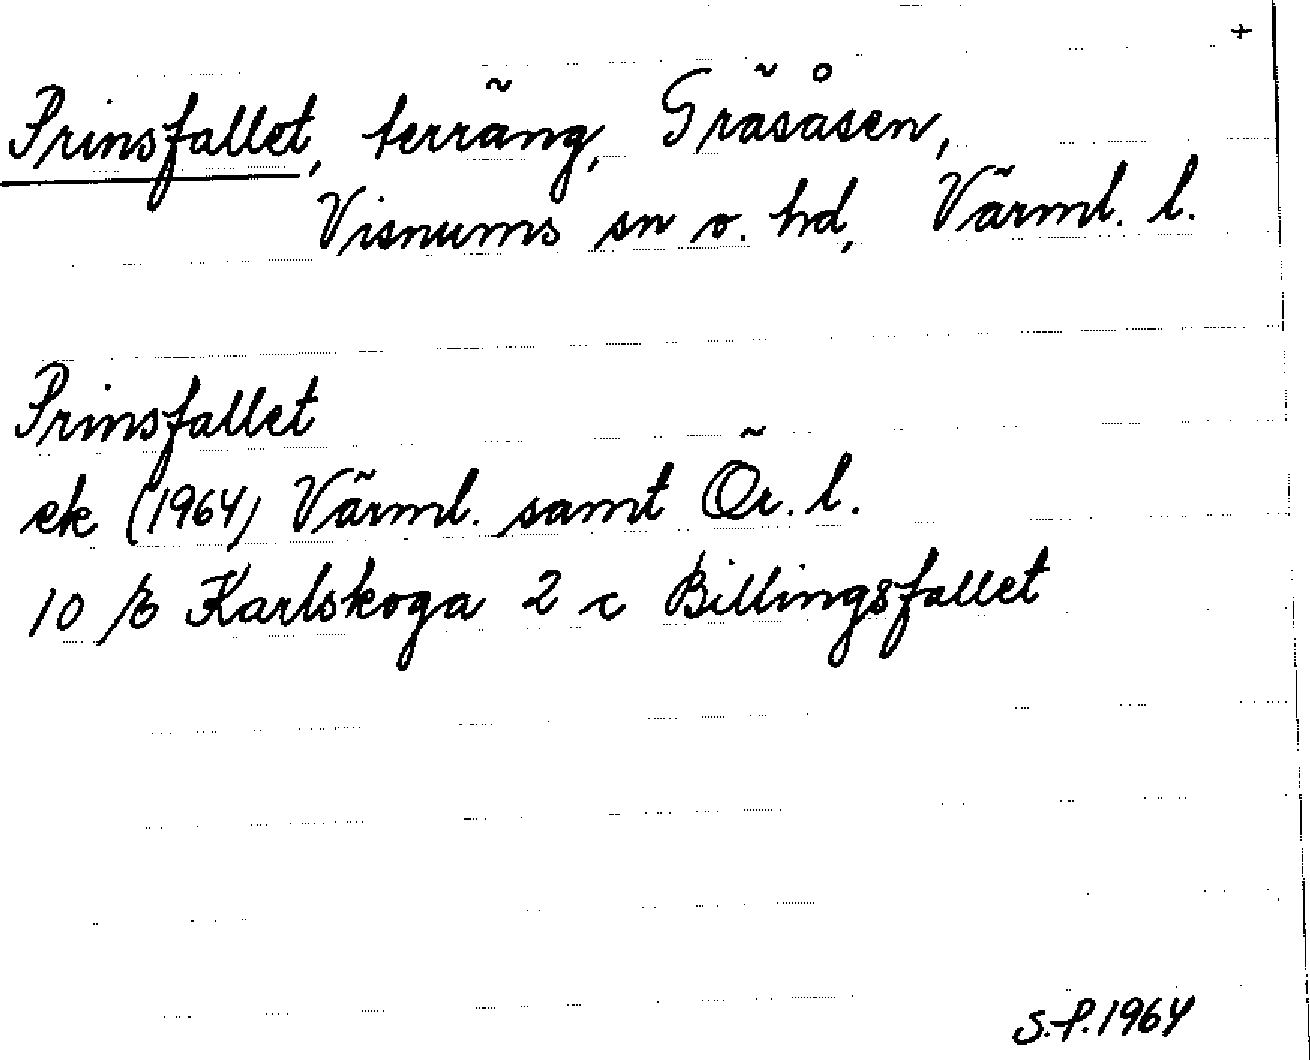 +
Prinsfallet, terräng, Gräsåsen,
Visnums sn o. hd, Värml. l.
Prinsfallet
ek (1964) Värml. samt Ör. l.
10 E Karlskoga 2 c Billingsfallet
S.P. 1964